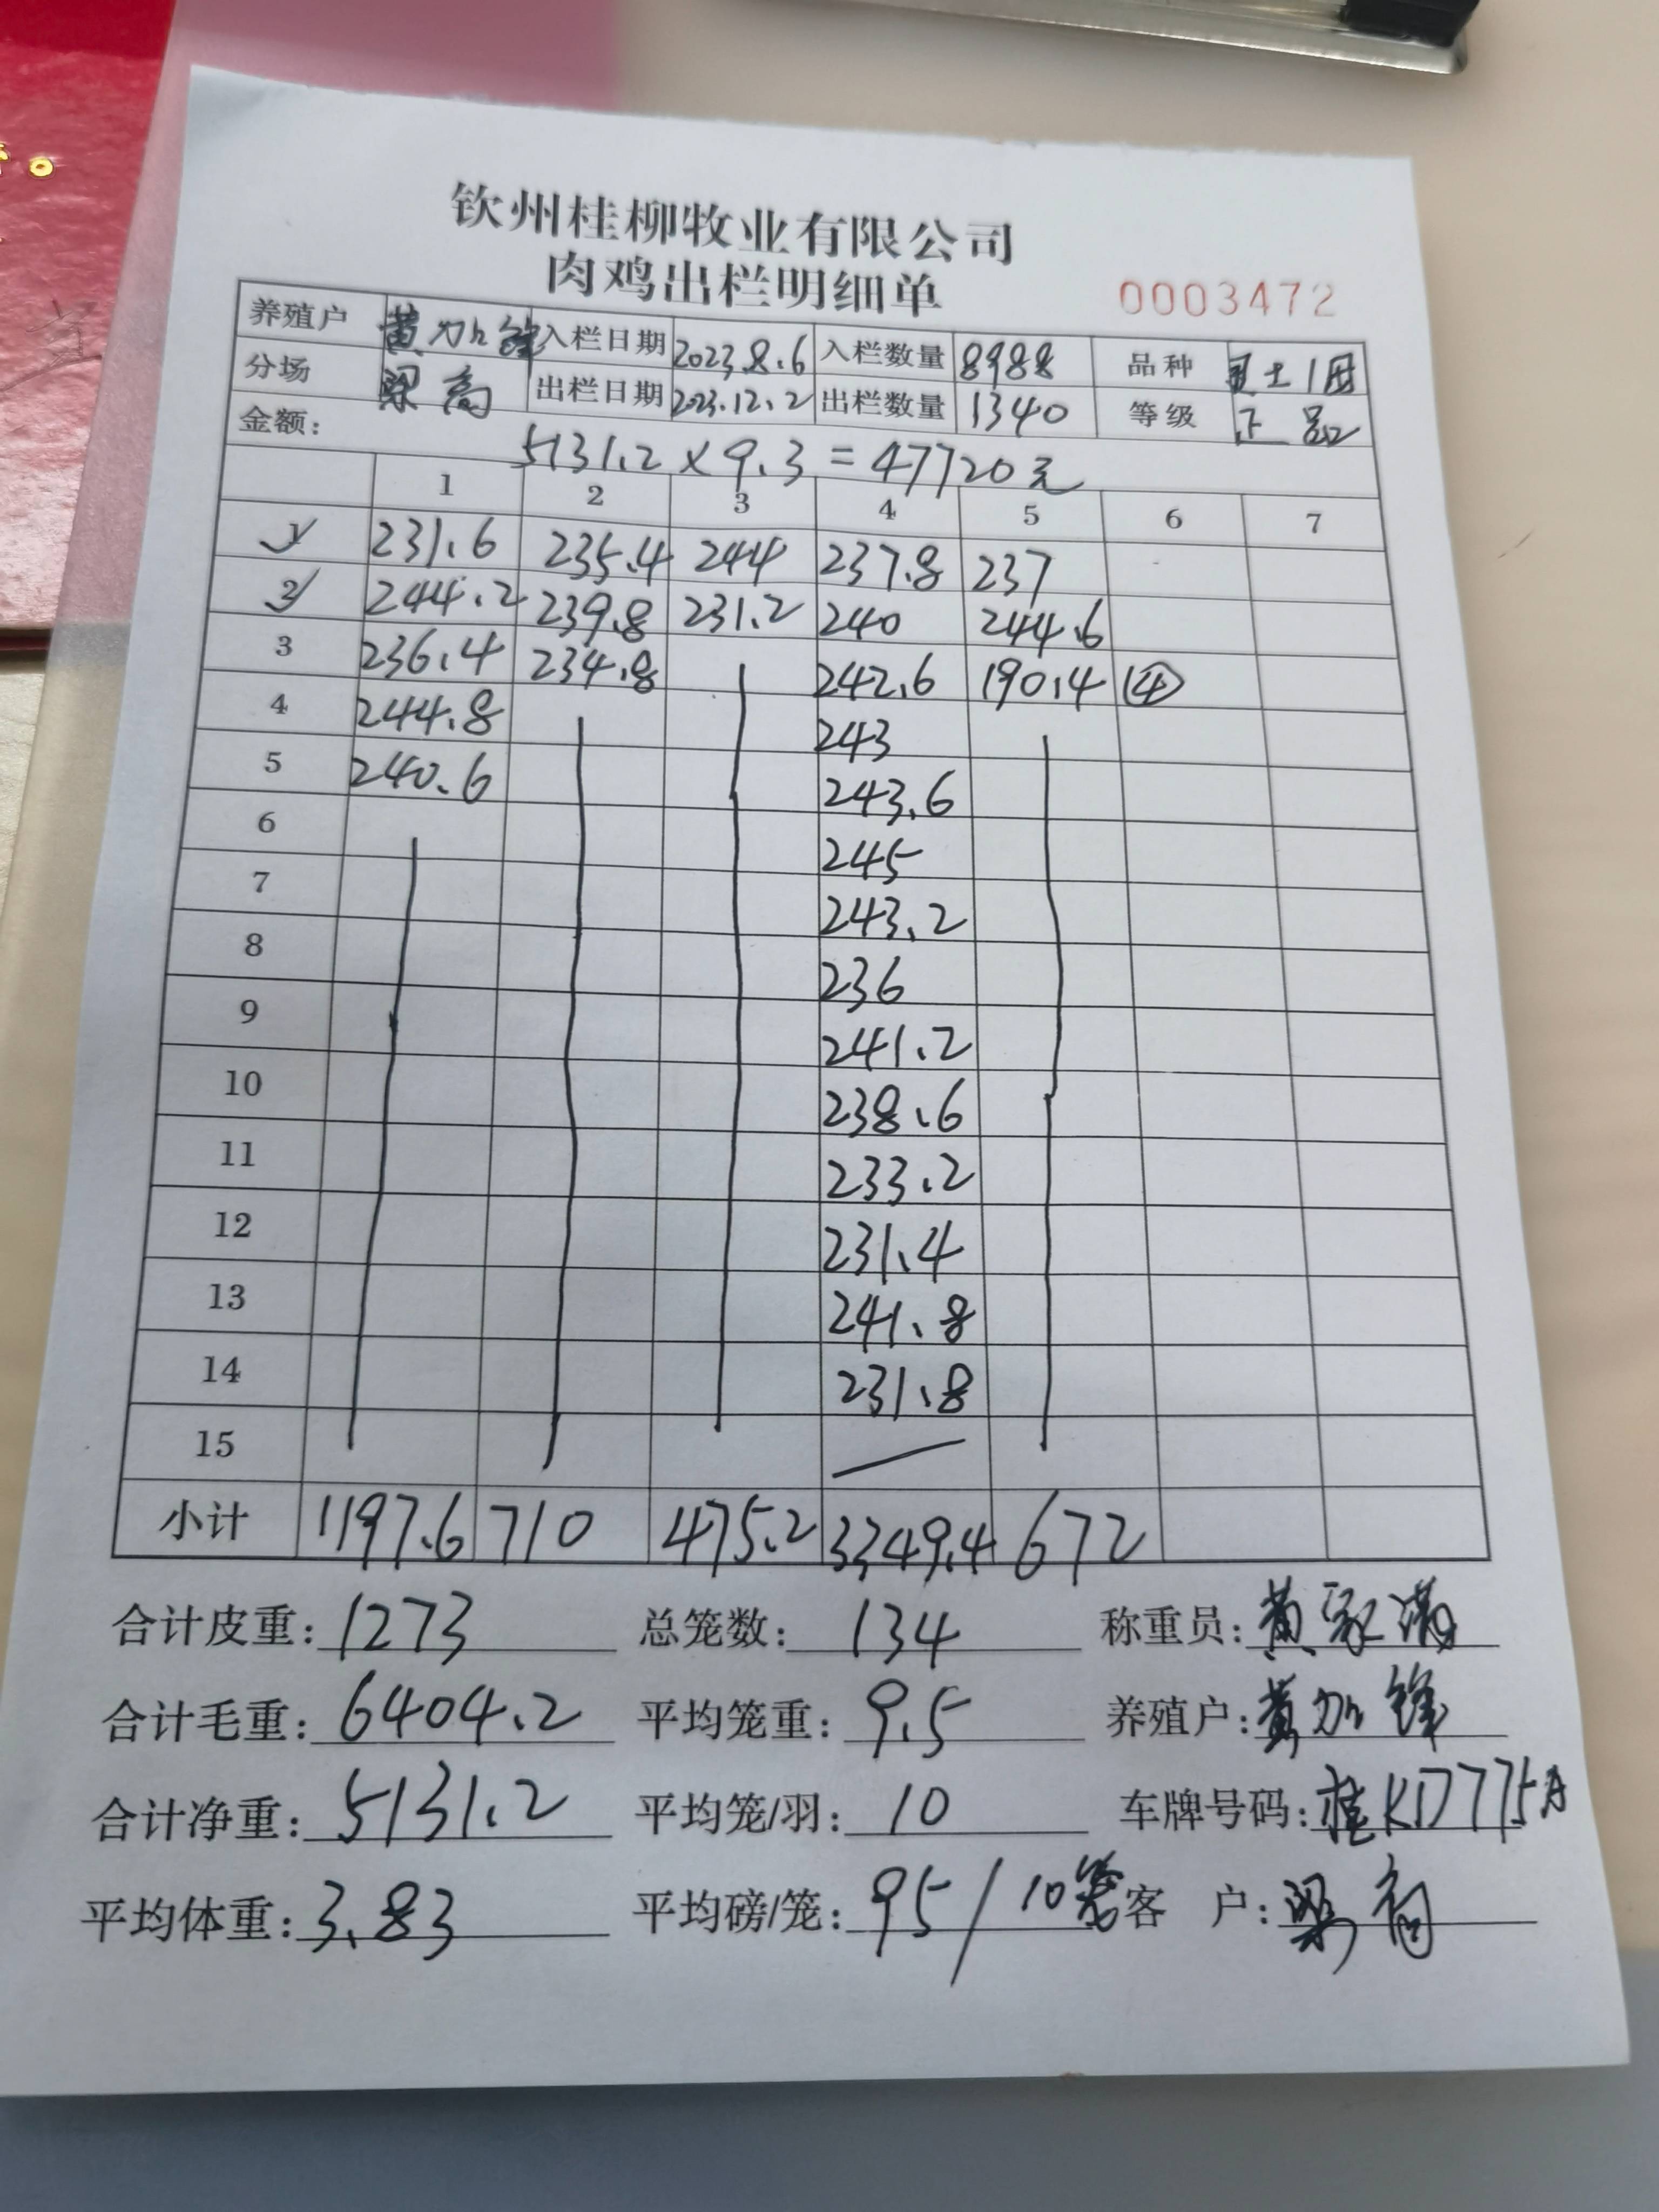 钦州桂柳牧业有限公司
肉鸡出栏明细单
0003472
养殖户 黄加锋 入栏日期 2023.8.6 入栏数量 8988 品种 土1
分场 梁高 出栏日期 2023.12.2 出栏数量 1340 等级 正品
金额: 5131.2×9.3=47720元
1 2 3 4 5 6 7
1 231.6 235.4 244 237.8 237
2 244.2 239.8 231.2 240 244.6
3 236.4 234.8 242.6 190.4 ④
4 244.8 243
5 240.6 243.6
6 245
7 243.2
8 236
9 241.2
10 238.6
11 233.2
12 231.4
13 241.8
14 231.8
15
小计 1197.6 710 475.2 3349.4 672
合计皮重: 1273 总笼数: 134 称重员: 黄家满
合计毛重: 6404.2 平均笼重: 9.5 养殖户: 黄加锋
合计净重: 5131.2 平均笼/羽: 10 车牌号码: 桂KD7775A
平均体重: 3.83 平均磅/笼: 95/10笼 客 户: 梁